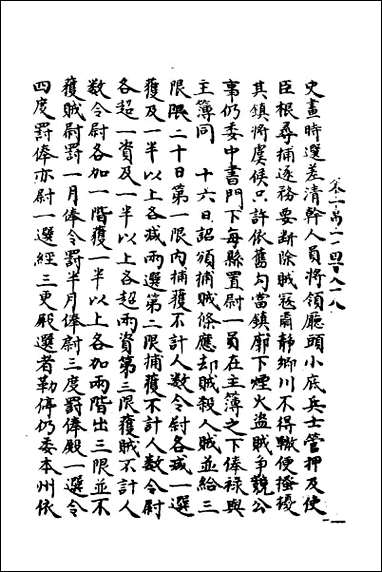 史畫時選差清幹人員將領廳頭小底兵士管押及使
臣根尋捕逐務要斷除賊寇肅静鄉川不得輙便搔擾
其鎮將虞候只許依舊勾當鎮廓下煙火盜賊爭競公
事仍委中書門下每縣置尉一員在主簿之下俸禄與
主簿同 十六日詔頒捕賊條應却賊殺人賊並給三
限限二十日第一限内捕獲不計人數令尉各減一選
獲及一半以上各減兩選第二限捕獲不計人數令尉
各超一資及一半以上各超兩資第三限獲賊不計人
数令尉各加一階獲一半以上各加兩階出三限並不
獲賊尉罰一月俸令罰半月俸尉三度罰俸殿一選令
四度罰俸亦尉一選經三更殿選者勒停仍委本州依